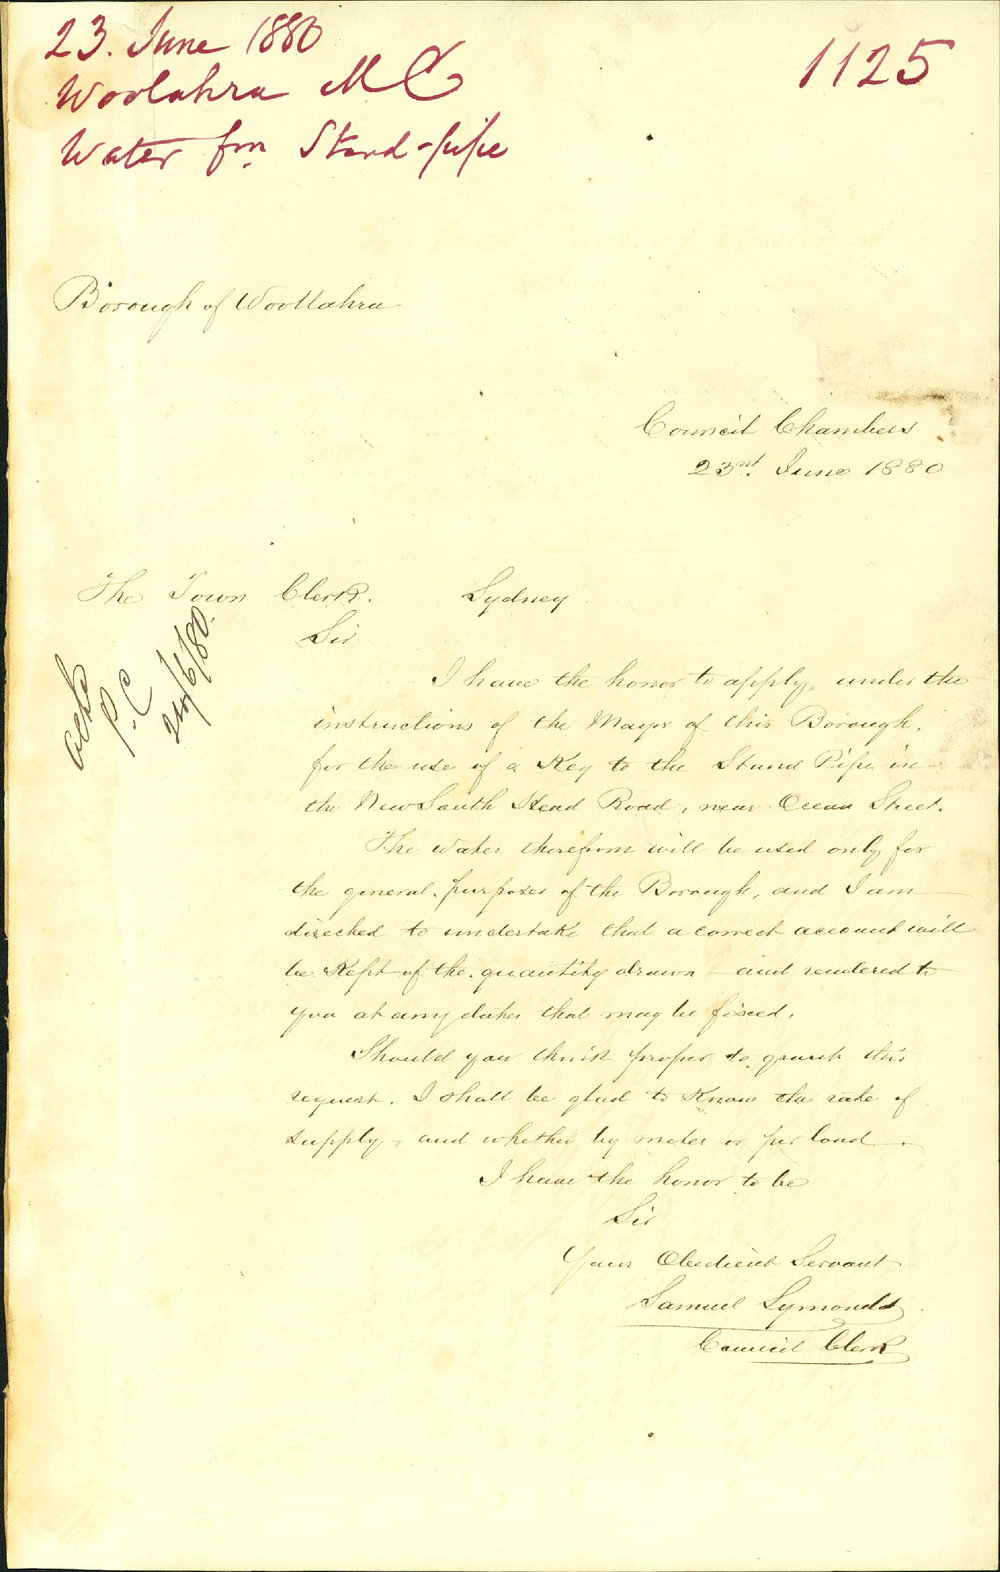 23. June 1880
Woolahra M C
Water fm Stand-pipe
1125
Borough of Woollahra
Council Chambers
23rd. June 1880
The Town Clerk. Sydney
Sir
ackd
P.C
24/6/80.
I have the honor to apply, under the
instructions of the Mayor of this Borough,
for the use of a Key to the Stand Pipe in
the New South Head Road, near Ocean Street.
The water therefrom will be used only for
the general purposes of the Borough, and I am
directed to undertake that a correct account will
be Kept of the quantity drawn - and rendered to
you at any dates that may be fixed.
Should you think proper to grant this
request. I shall be glad to Know the rate of
supply, and whether by meter or per load.
I have the honor to be
Sir
Your Obedient Servant
Samuel Symonds
Council Clerk